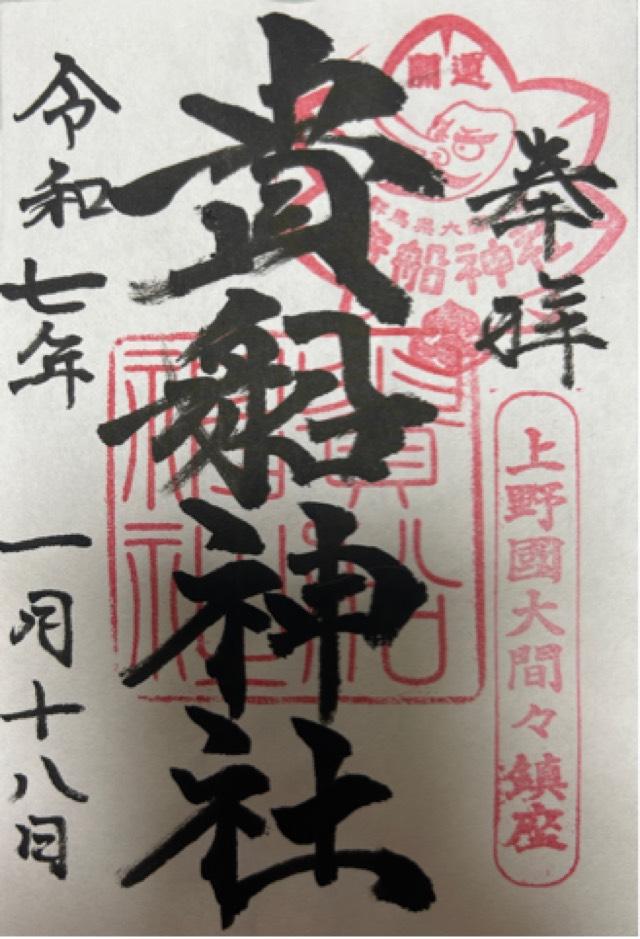 奉拝
開運
貴船神社
上野國大間々鎮座
貴船神社
貴船神社
令和七年 一月十八日